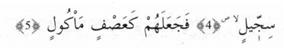 سِجِّيلٍ ۙ ص ﴿4﴾ فَجَعَلَهُمْ كَعَصْفٍ مَأْكُولٍ ﴿5﴾